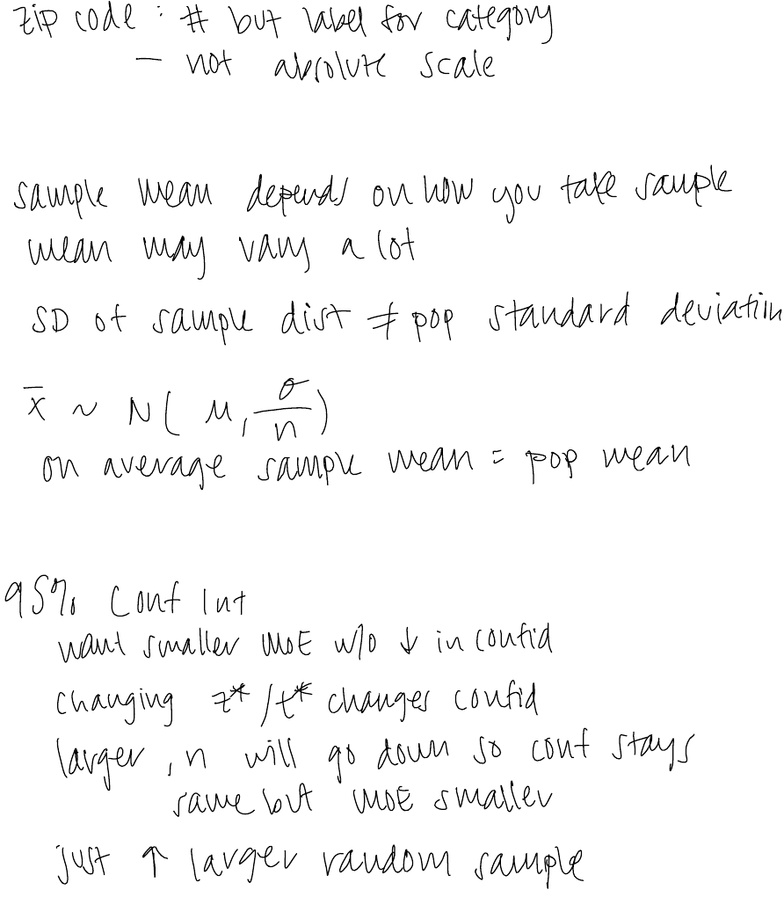 zip code : # but label for category
— not absolute scale
sample mean depends on how you take sample
mean may vary a lot
SD of sample dist ≠ pop standard deviatin
x̄ ~ N( μ, σ/n )
on average sample mean = pop mean
95% Conf Int
want smaller MoE w/o ↓ in confid
changing z* / t* changes confid
larger , n will go down so conf stays
same but MOE smaller
just ↑ larger random sample